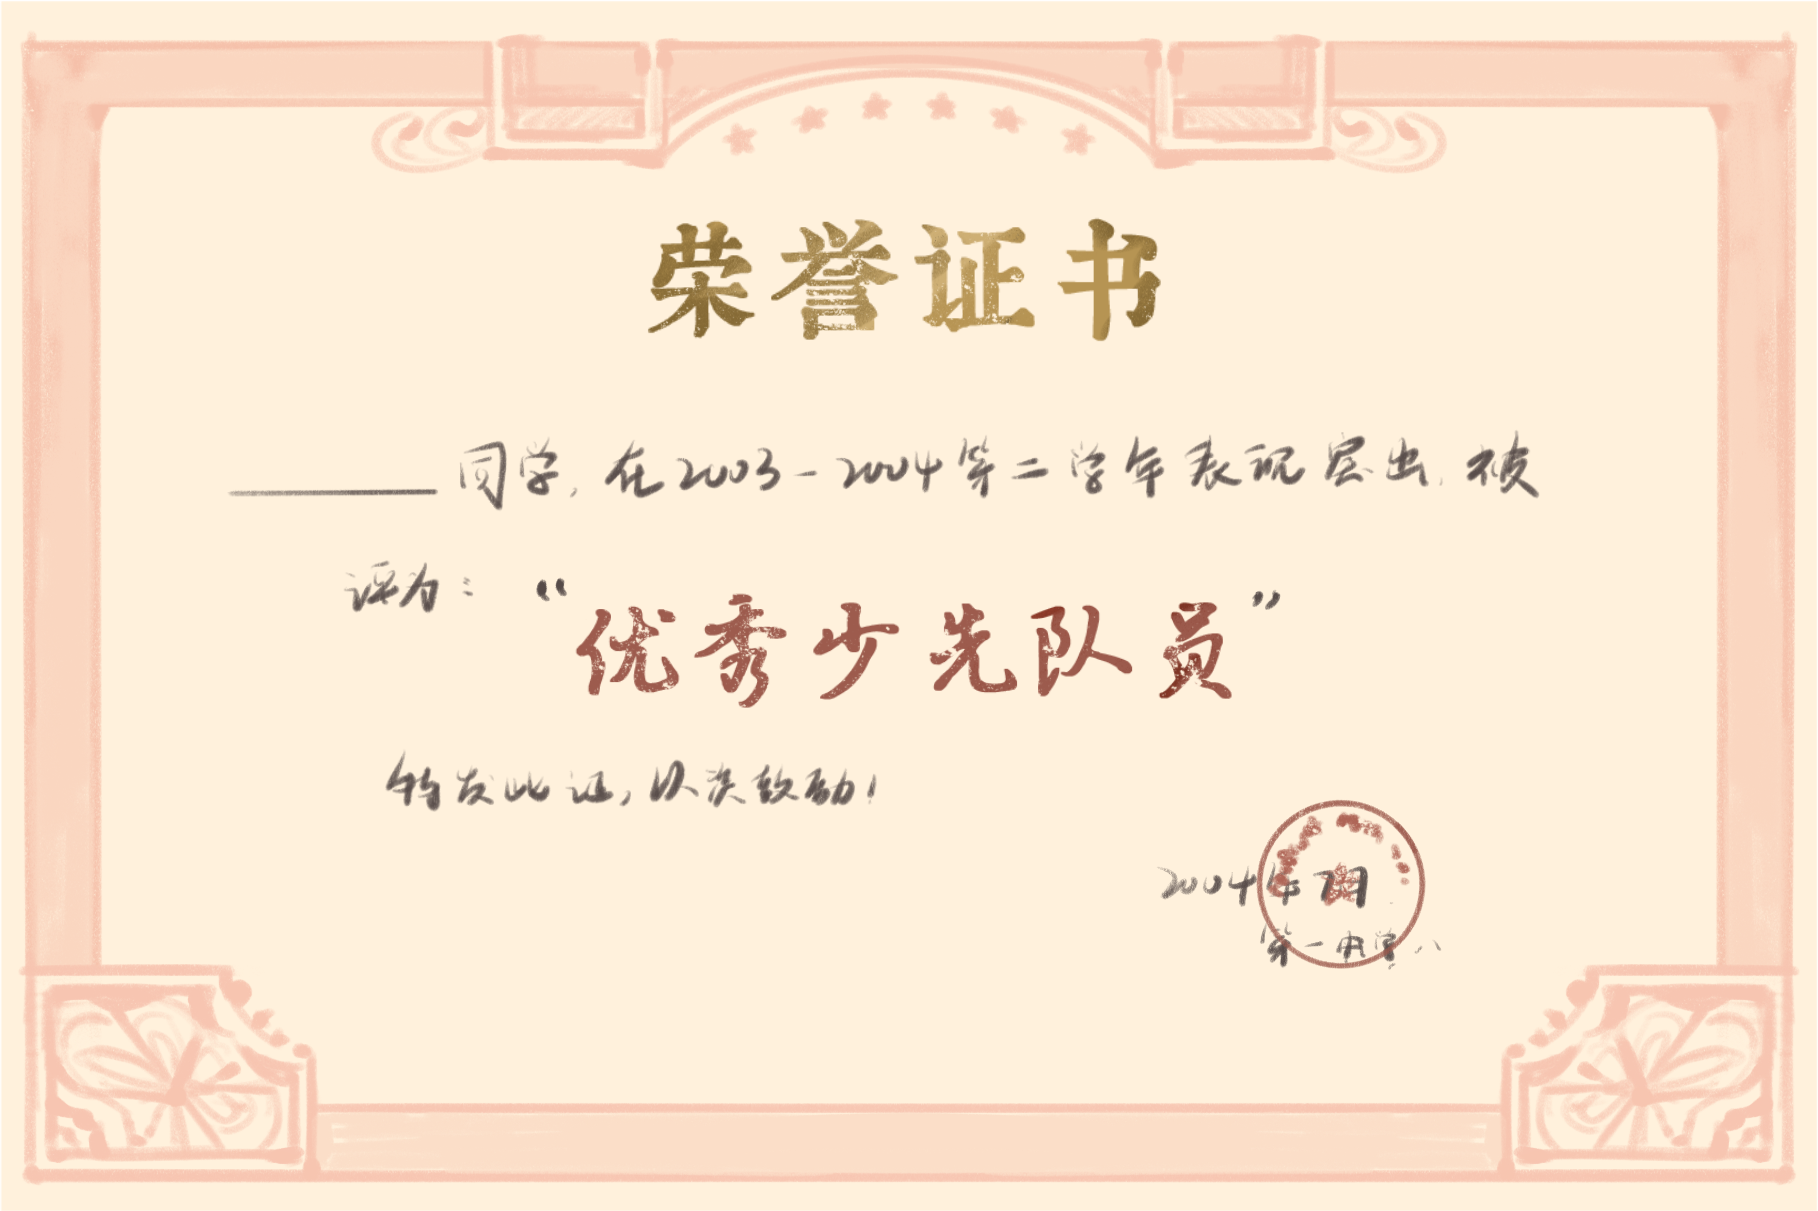 荣誉证书
同学,在2003-2004第二学年表现突出,被
评为:“优秀少先队员”
特发此证,以资鼓励!
2004年7月
第一中学